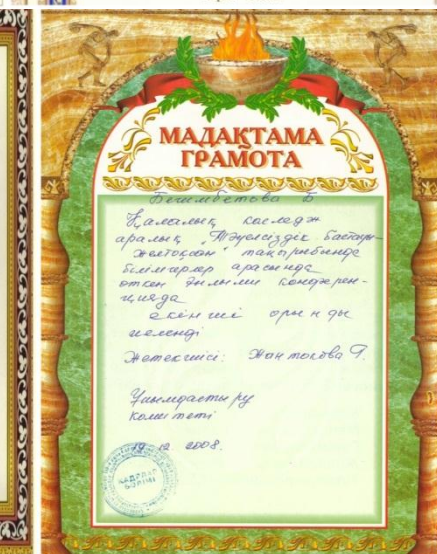 МАДАҚТАМА
ГРАМОТА
Бегимбетова Б
Қалалық колледж
аралық „Тәуелсіздік бастауы-
желтоқсан" тақырыбында
білімгерлер арасында
өткен ғылыми конферен-
цияда
екінші орынды
иеленді
Жетекшісі: Жантокова Г.
Ұйымдастыру
комитеті
12. 2008.
КАДРЛАР
БӨЛІМІ